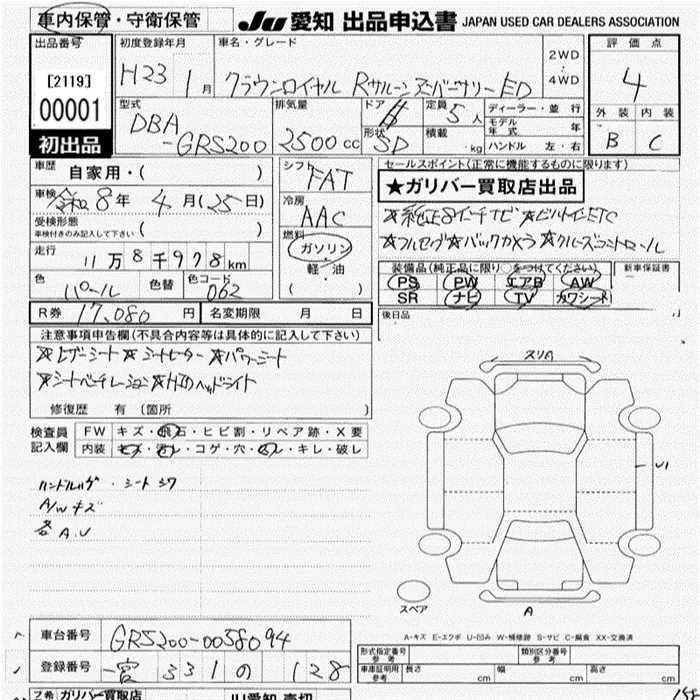 車内保管・守衛保管 JU 愛知 出品申込書 JAPAN USED CAR DEALERS ASSOCIATION
出品番号 初度登録年月 車名・グレード 2WD・4WD 評価点
[2119] H23 1月 クラウンロイヤル Rサルーン スペシャル ED 4
00001 外装 内装
型式 排気量 ドア 定員 5人 ディーラー・並行
DBA-GRS200 2500cc 形状 SD 積載 kg モデル年式 年 B C
初出品 ハンドル 左・右
車歴 自家用・( ) シフト FAT セールスポイント(正常に機能するものに限ります)
★ガリバー買取店出品
車検 令和8年4月(25日) 冷房 AAC ☆純正8インチナビ☆ビルトインETC
受検形態 車検付きのみ記入して下さい ( ) 燃料 ガソリン・軽・油 ( ) ☆フルセグ☆バックカメラ☆クルーズコントロール
走行 11万8千978km
装備品(純正品に限り○をつけてください) 新車保証書
色 パール 色替 色コード 062 PS PW エアB AW
SR ナビ TV カワシート
R券 17,080円 名変期限 月 日 後日品
注意事項申告欄(不具合内容等は具体的に記入して下さい)
☆レザーシート ☆シートヒーター ☆パワーシート スリA
☆シートベンチレーション☆HIDヘッドライト
修復歴 有 (箇所 )
検査員記入欄 FW キズ・飛石・ヒビ割・リペア跡・X要
内装 キズ・汚レ・コゲ・穴・スレ・キレ・破レ
U1
ハンドルハゲ・シートシワ
A/Wキズ
各A.U
スペア A
A-キズ E-エクボ U-凹み W-補修跡 S-サビ C-腐食 XX-交換済
車台番号 GRS200-0058094 形式指定番号 参考 類別区分番号 参考
登録番号 一宮 331 の 128 車庫証明用 参考 長さ cm 幅 cm 高さ cm
ガリバー買取店 JU愛知